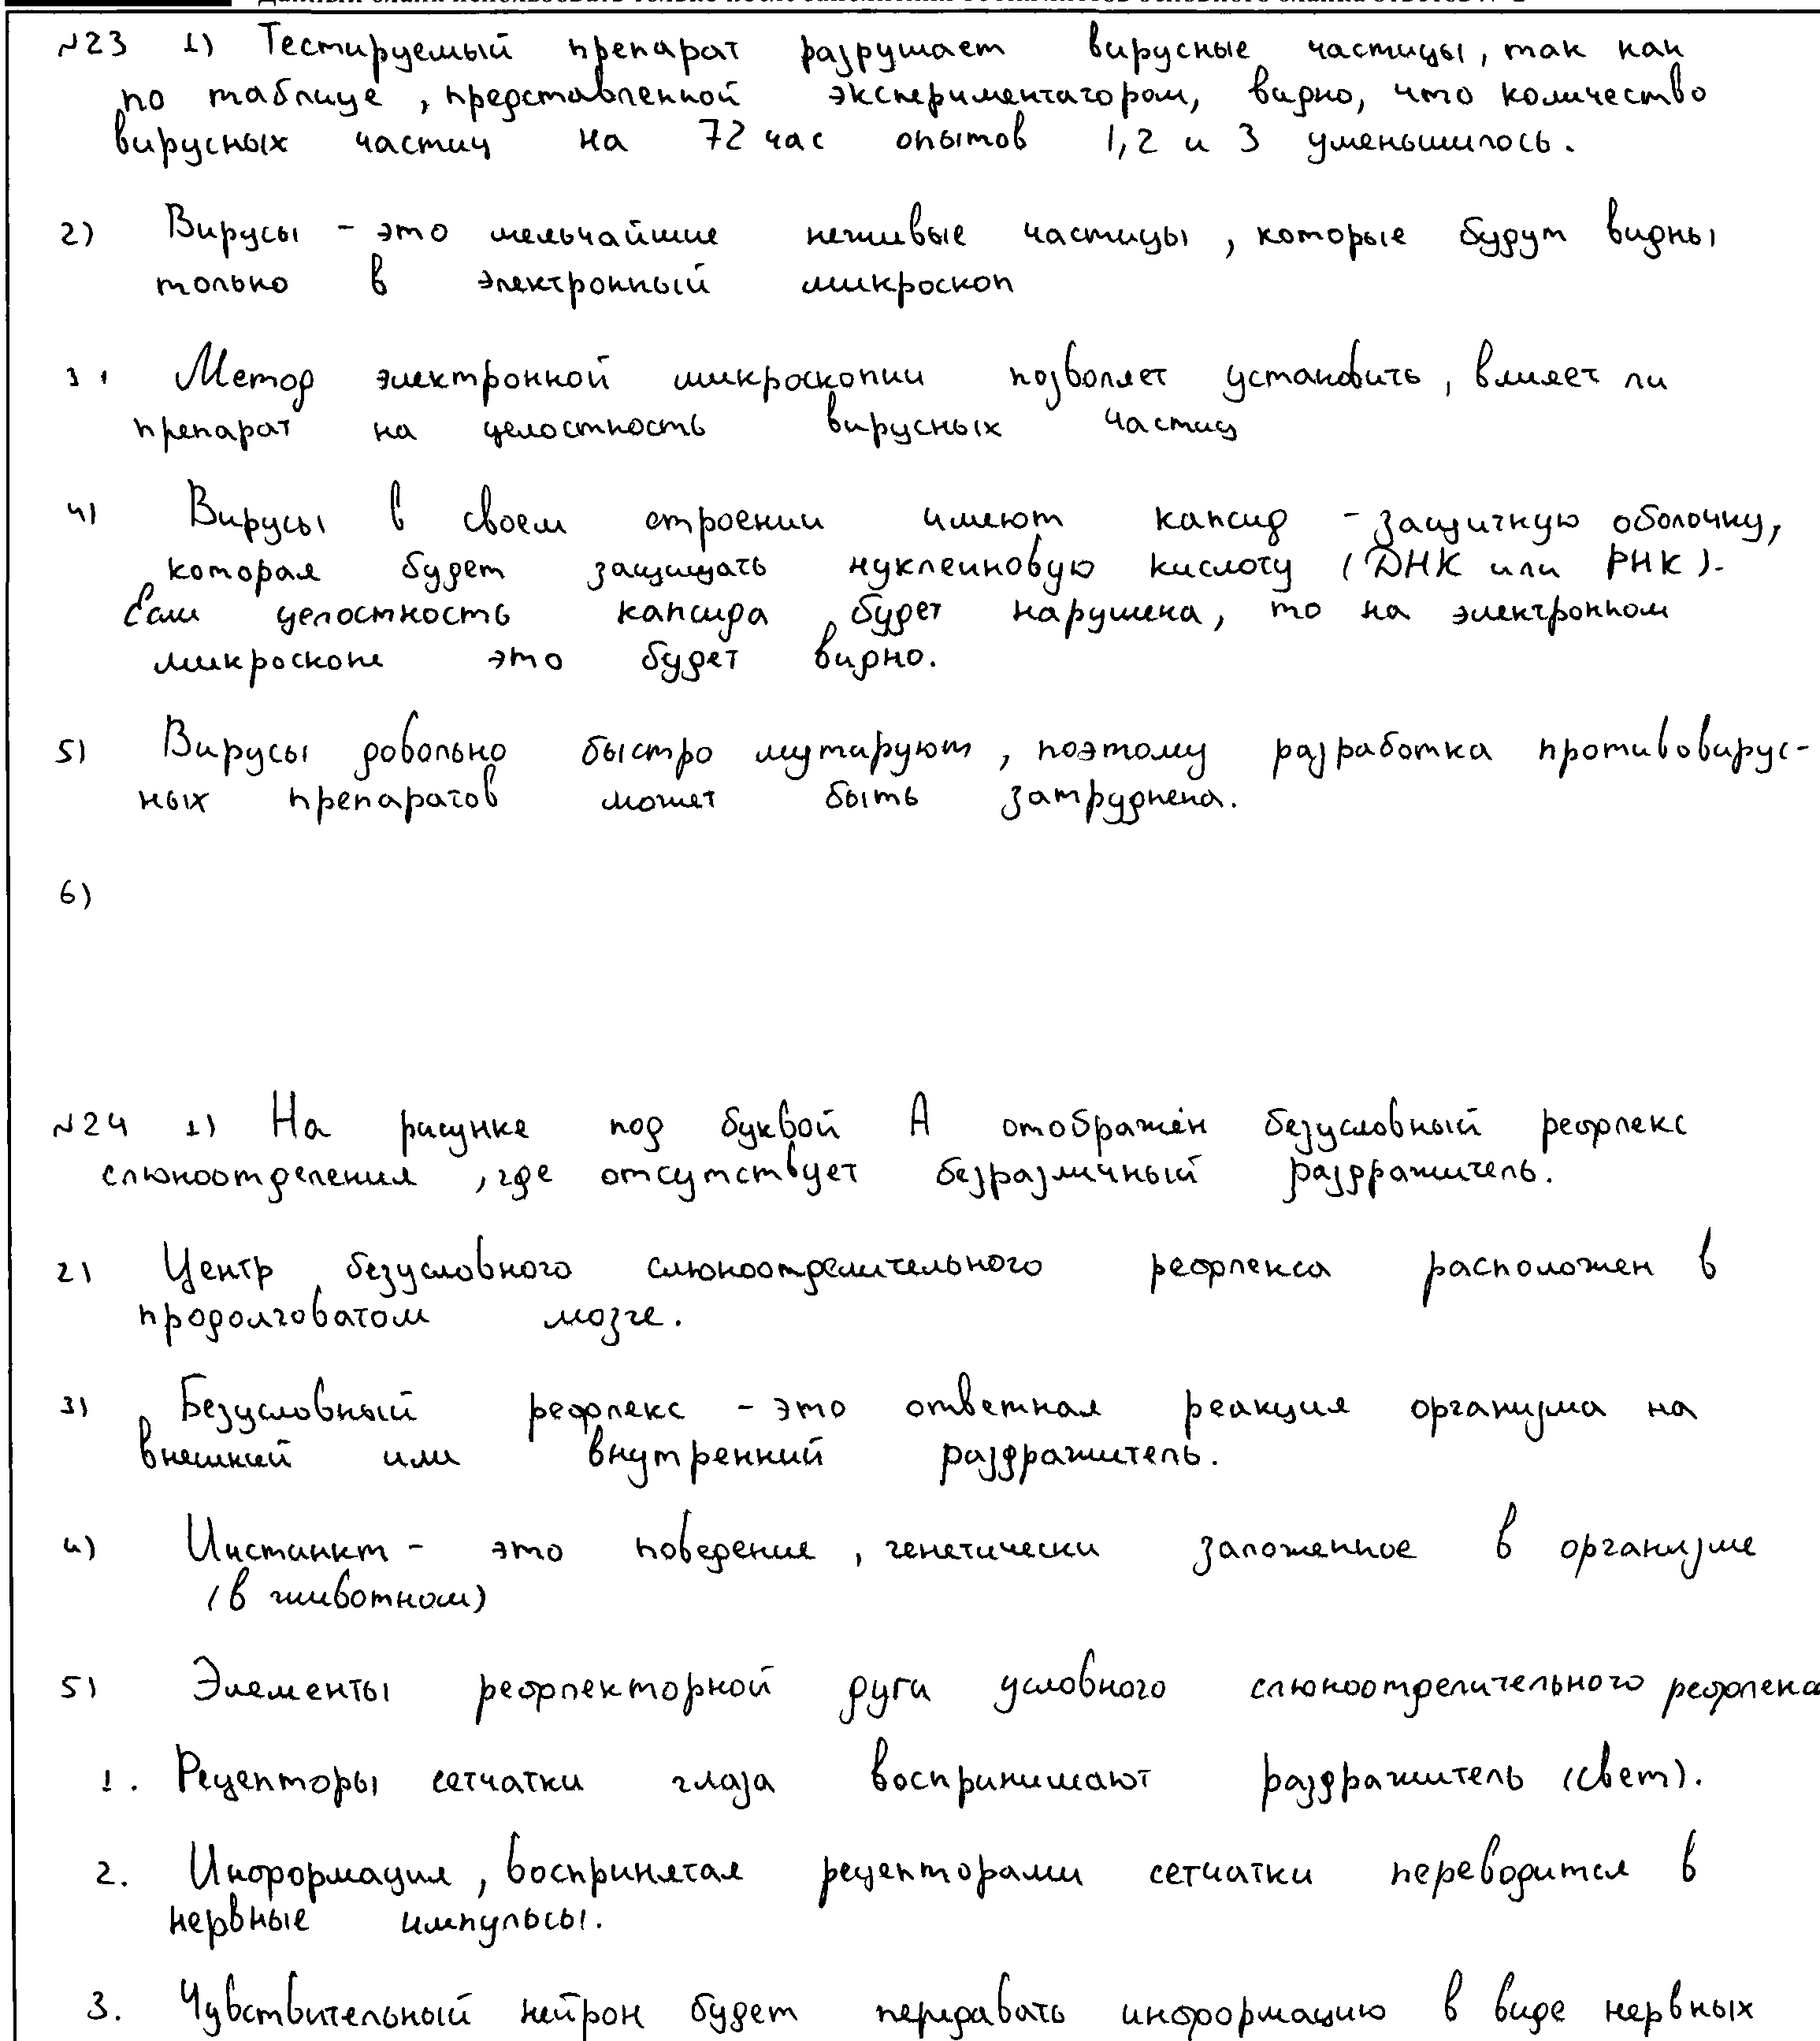 №23 1) Тестируемый препарат разрушает вирусные частицы, так как
по таблице, представленной экспериментатором, видно, что количество
вирусных частиц на 72 час опытов 1,2 и 3 уменьшилось.
2) Вирусы - это мельчайшие неживые частицы, которые будут видны
только в электронный микроскоп
3) Метод электронной микроскопии позволяет установить, влияет ли
препарат на целостность вирусных частиц
4) Вирусы в своем строении имеют капсид - защитную оболочку,
которая будет защищать нуклеиновую кислоту (ДНК или РНК).
Если целостность капсида будет нарушена, то на электронном
микроскопе это будет видно.
5) Вирусы довольно быстро мутируют, поэтому разработка противовирус-
ных препаратов может быть затруднена.
6)
№24 1) На рисунке под буквой А отображён безусловный рефлекс
слюноотделения, где отсутствует безразличный раздражитель.
2) Центр безусловного слюноотделительного рефлекса расположен в
продолговатом мозге.
3) Безусловный рефлекс - это ответная реакция организма на
внешний или внутренний раздражитель.
4) Инстинкт - это поведение, генетически заложенное в организме
(в животном)
5) Элементы рефлекторной дуги условного слюноотделительного рефлекса
1. Рецепторы сетчатки глаза воспринимают раздражитель (свет).
2. Информация, воспринятая рецепторами сетчатки переводится в
нервные импульсы.
3. Чувствительный нейрон будет передавать информацию в виде нервных